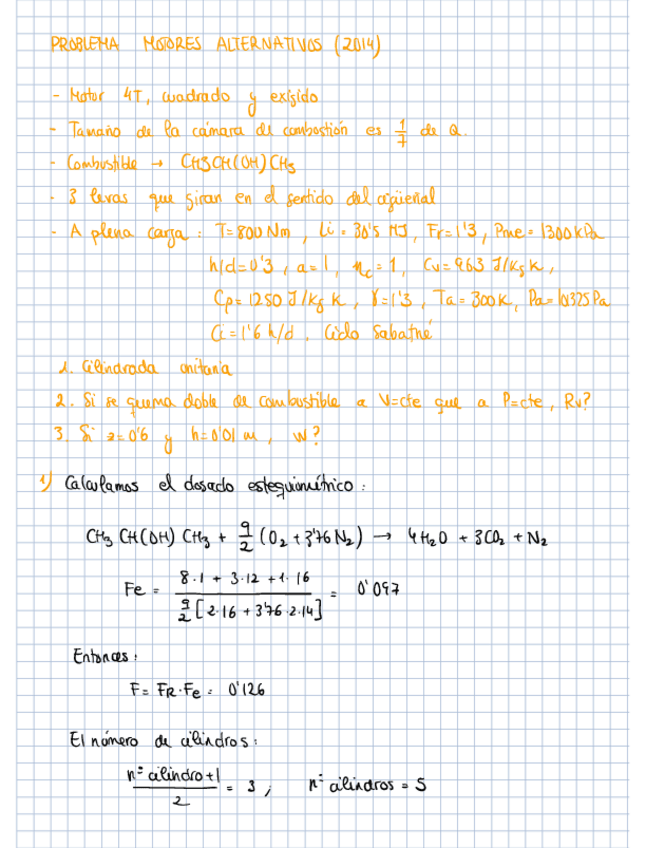 PROBLEMA MOTORES ALTERNATIVOS (2014)
- Motor 4T, cuadrado y exigido
- Tamaño de la cámara de combostión es 1/7 de Q.
- Combustible → CH3CH(OH)CH3
- 3 levas que giran en el sentido del cigüeñal
- A plena carga: T=800 Nm, Li = 30'5 MJ, Fr=1'3, Pme = 1300 kPa
h/d=0'3, a=1, ηc=1, Cv=963 J/kg K,
Cp=1250 J/kg K, γ=1'3, Ta=300K, Pa=101325 Pa
Ci=1'6 h/d. Ciclo Sabathé
1. Cilindrada unitaria
2. Si se quema doble de combustible a V=cte que a P=cte, Rv?
3. Si z=0'6 y h=0'01 m, w?
1) Calculamos el dosado estequiométrico:
CH3 CH(OH) CH3 + 9/2 (O2 + 3'76 N2) → 4 H2O + 3 CO2 + N2
Fe = (8·1 + 3·12 + 1·16) / (9/2 [2·16 + 3'76·2·14]) = 0'097
Entonces:
F = FR·Fe = 0'126
El número de cilindros:
(nº cilindro+1)/2 = 3 ; nº cilindros = 5